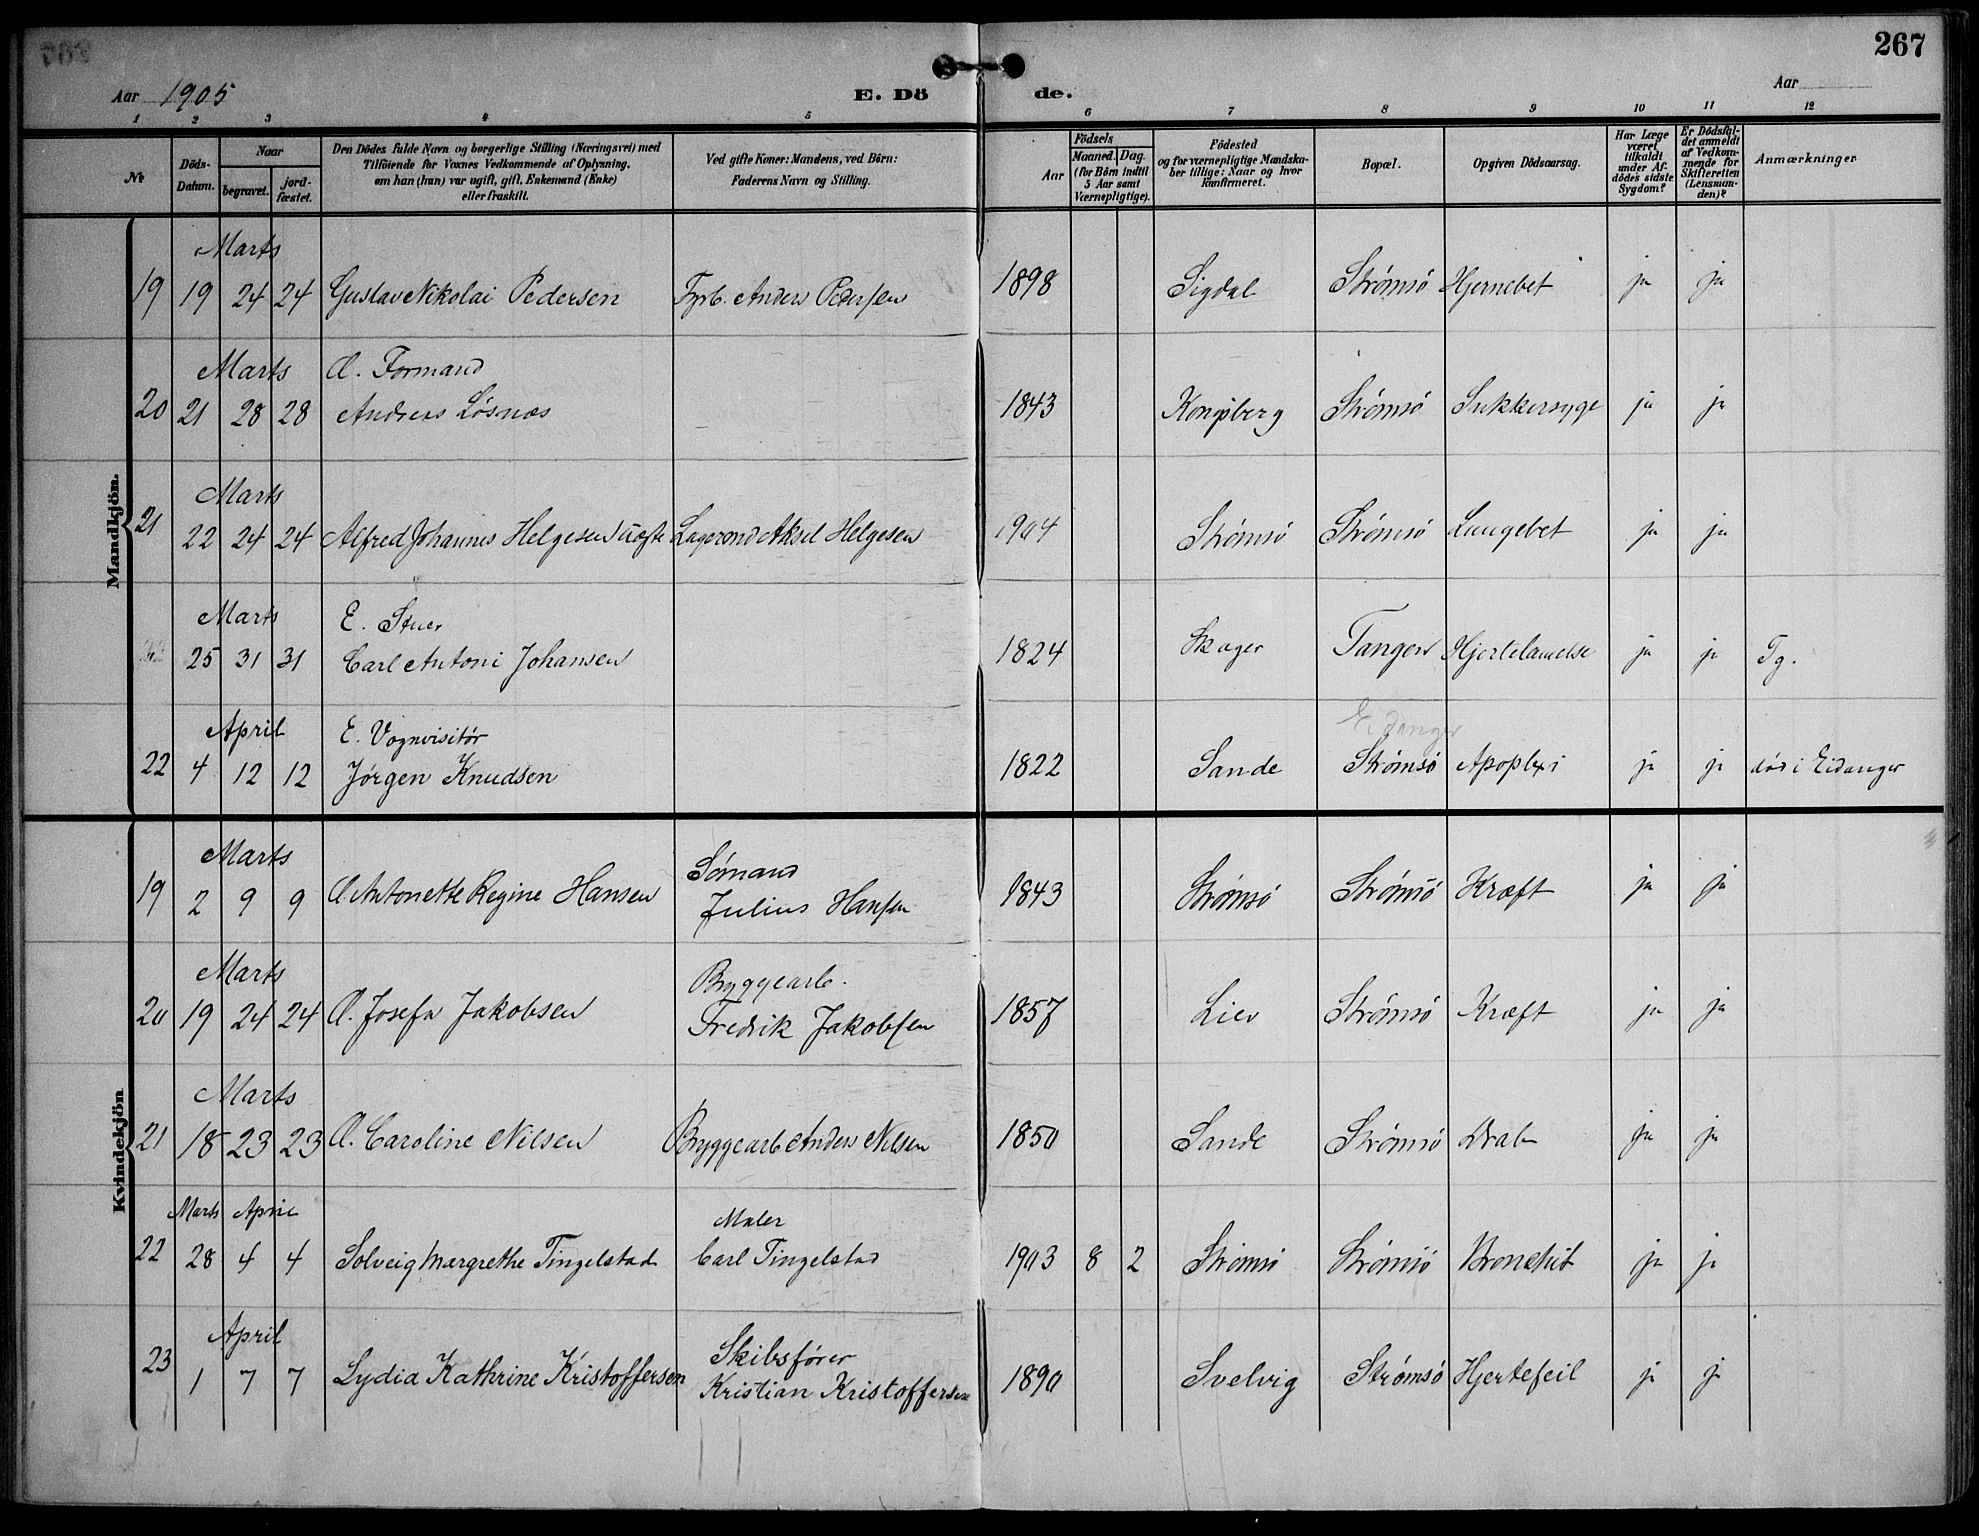 267
Aar 1905
E. Dö de.
Aar
1 2 3 4 5 6 7 8 9 10 11 12
№
Döds-Datum.
Naar
begravet.
jord-fæstet.
Den Dödes fulde Navn og borgerlige Stilling (Næringsvei) med
Tilföiende for Voxnes Vedkommende af Oplysning,
om han (hun) var ugift, gift, Enkemand (Enke)
eller fraskilt.
Ved gifte Koner: Mandens, ved Börn:
Faderens Navn og Stilling.
Födsels
Aar
Maaned. Dag.
(for Börn indtil
5 Aar samt
Værnepligtige).
Födested
og for værnepligtige Mandska-
ber tillige: Naar og hvor
konfirmeret.
Bopæl.
Opgiven Dödsaarsag.
Har Læge
været
tilkaldt
under Af-
dödes sidste
Sygdom?
Er Dödsfal-
det anmeldt
af Vedkom-
mende for
Skifteretten
(Lensman-
den)?
Anmærkninger
Mandkjön.
Marts
19 19 24 24 Gustav Nikolai Pedersen Fyrb. Anders Pedersen 1898 Sigdal Strømsö Hjernebet ja ja
Marts Æ. Formand
20 21 28 28 Andreas Løsnæs 1843 Kongsberg Strømsö Sukkersyge ja ja
Marts
21 22 24 24 Alfred Johannes Helgesen uægte Aksel Helgesen 1904 Strømsö Strømsö Lungebet ja ja
Marts E. Stuer
25 31 31 Carl Antoni Johansen 1824 Skoger Tangen Hjertelamelse ja ja Tg.
April E. Vognvisitör Eidanger
22 4 12 12 Jørgen Knudsen 1822 Sande Strømsö Apoplexi ja ja död i Eidanger
Kvindekjön
Marts Sømand
19 2 9 9 Æ Antonette Regine Hansen Julius Hansen 1843 Strømsö Strømsö Kræft ja ja
Marts Bryggearb.
20 19 24 24 Æ. Josefa Jakobsen Fredrik Jakobsen 1857 Lier Strømsö Kræft ja ja
Marts
21 18 23 23 Æ. Caroline Nilsen Bryggearb Anders Nilsen 1850 Sande Strømsö ja ja
Marts April Maler
22 28 4 4 Solveig Margrethe Tingelstad Carl Tingelstad 1903 8 2 Strømsö Strømsö Bronchit ja ja
April Skibsfører
23 1 7 7 Lydia Kathrine Kristoffersen Kristian Kristoffersen 1890 Svelvig Strømsö Hjertefeil ja ja